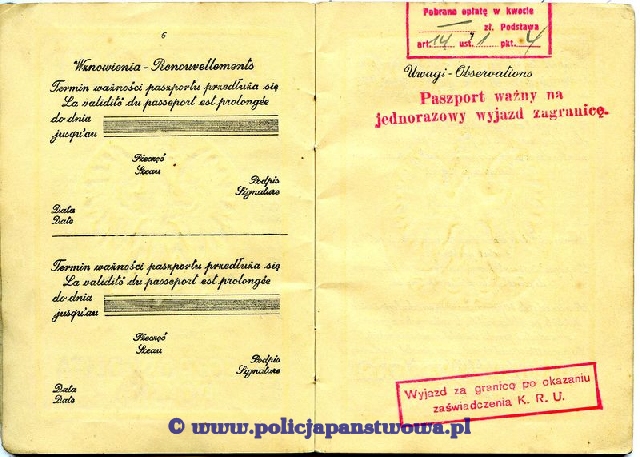 6
Wznowienia - Renouvellements
Termin ważności paszportu przedłuża się
La validité du passeport est prolongée
do dnia
jusqu'au
Pieczęć
Sceau
Podpis
Signature
Data
Date
Termin ważności paszportu przedłuża się
La validité du passeport est prolongée
do dnia
jusqu'au
Pieczęć
Sceau
Podpis
Signature
Data
Date
Pobrano opłatę w kwocie
— zł. Podstawa
art. 14 ust. 1 pkt. 4
Uwagi - Observations
Paszport ważny na
jednorazowy wyjazd zagranicę.
Wyjazd za granicę po okazaniu
zaświadczenia K. R. U.
© www.policjapanstwowa.pl